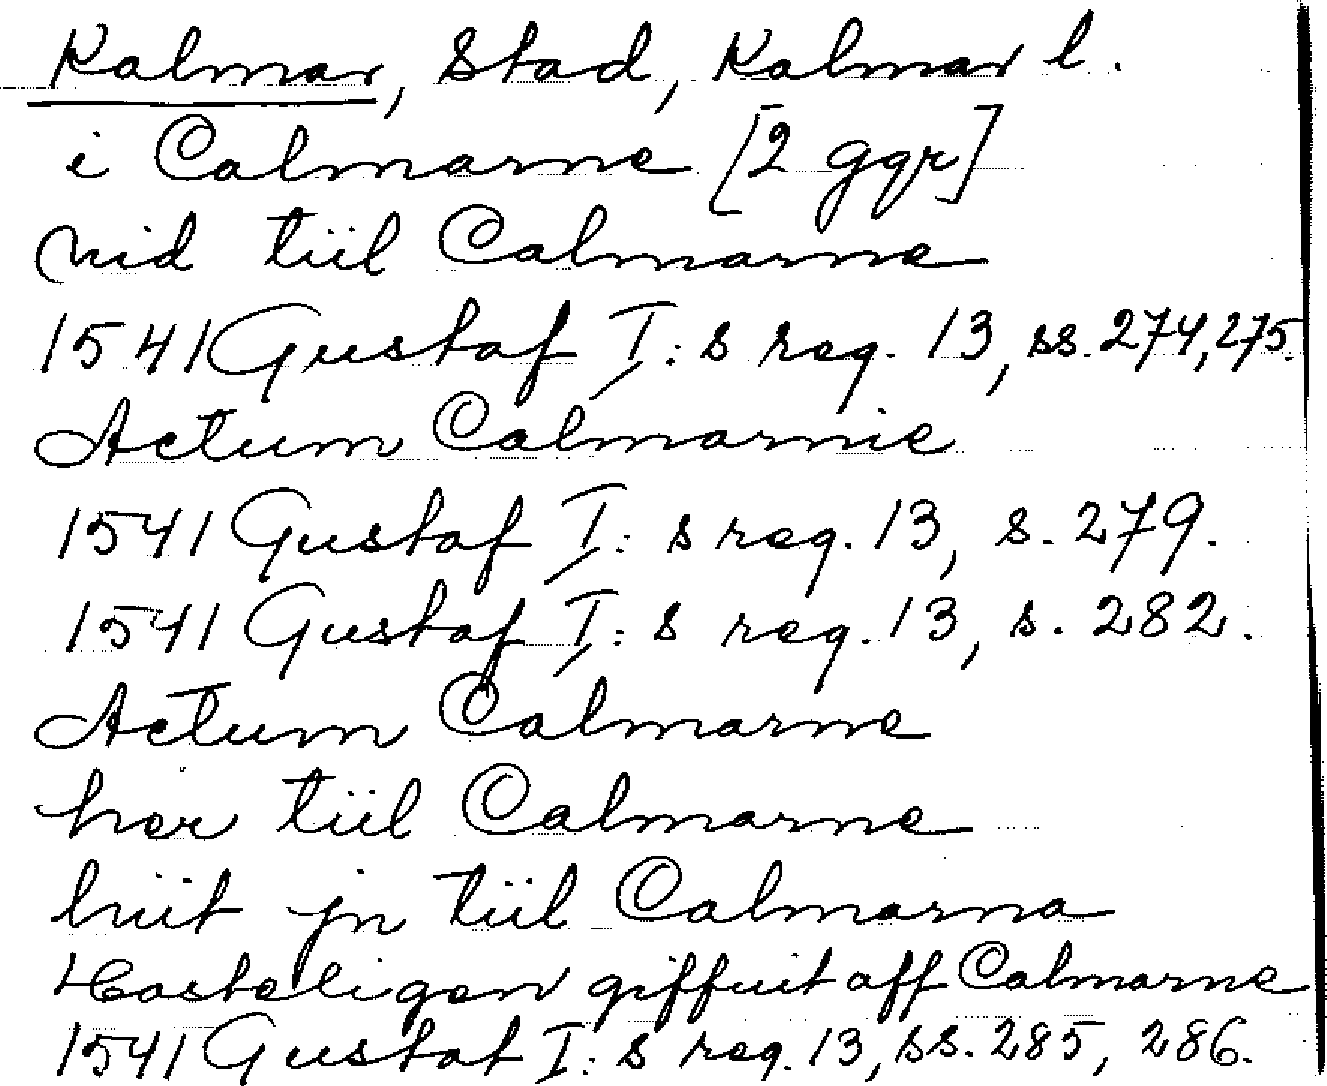 Kalmar, Stad, Kalmar l.
i Calmarne [2 ggr]
nid tiil Calmarne
1541 Gustaf I:s reg. 13, ss. 274, 275.
Actum Calmarnie
1541 Gustaf I:s reg. 13, s. 279.
1541 Gustaf I:s reg. 13, s. 282.
Actum Calmarne
her tiil Calmarne
hiit jn tiil Calmarna
Hasteligen giffuit aff Calmarne
1541 Gustaf I:s reg. 13, ss. 285, 286.